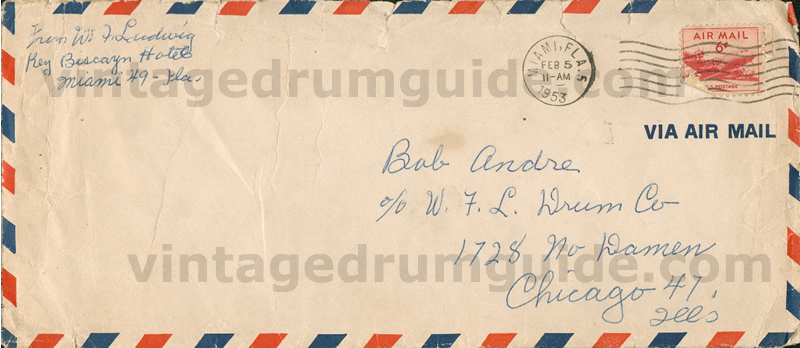 From Wm F. Ludwig
Key Biscayn Hotel
Miami 49 - Fla.
MIAMI, FLA. 5
FEB 5
11-AM
1953
AIR MAIL
6¢
U.S. POSTAGE
VIA AIR MAIL
Bob Andre
c/o W. F. L. Drum Co
1728 No Damen
Chicago 47.
Ills
vintagedrumguide.com
vintagedrumguide.com